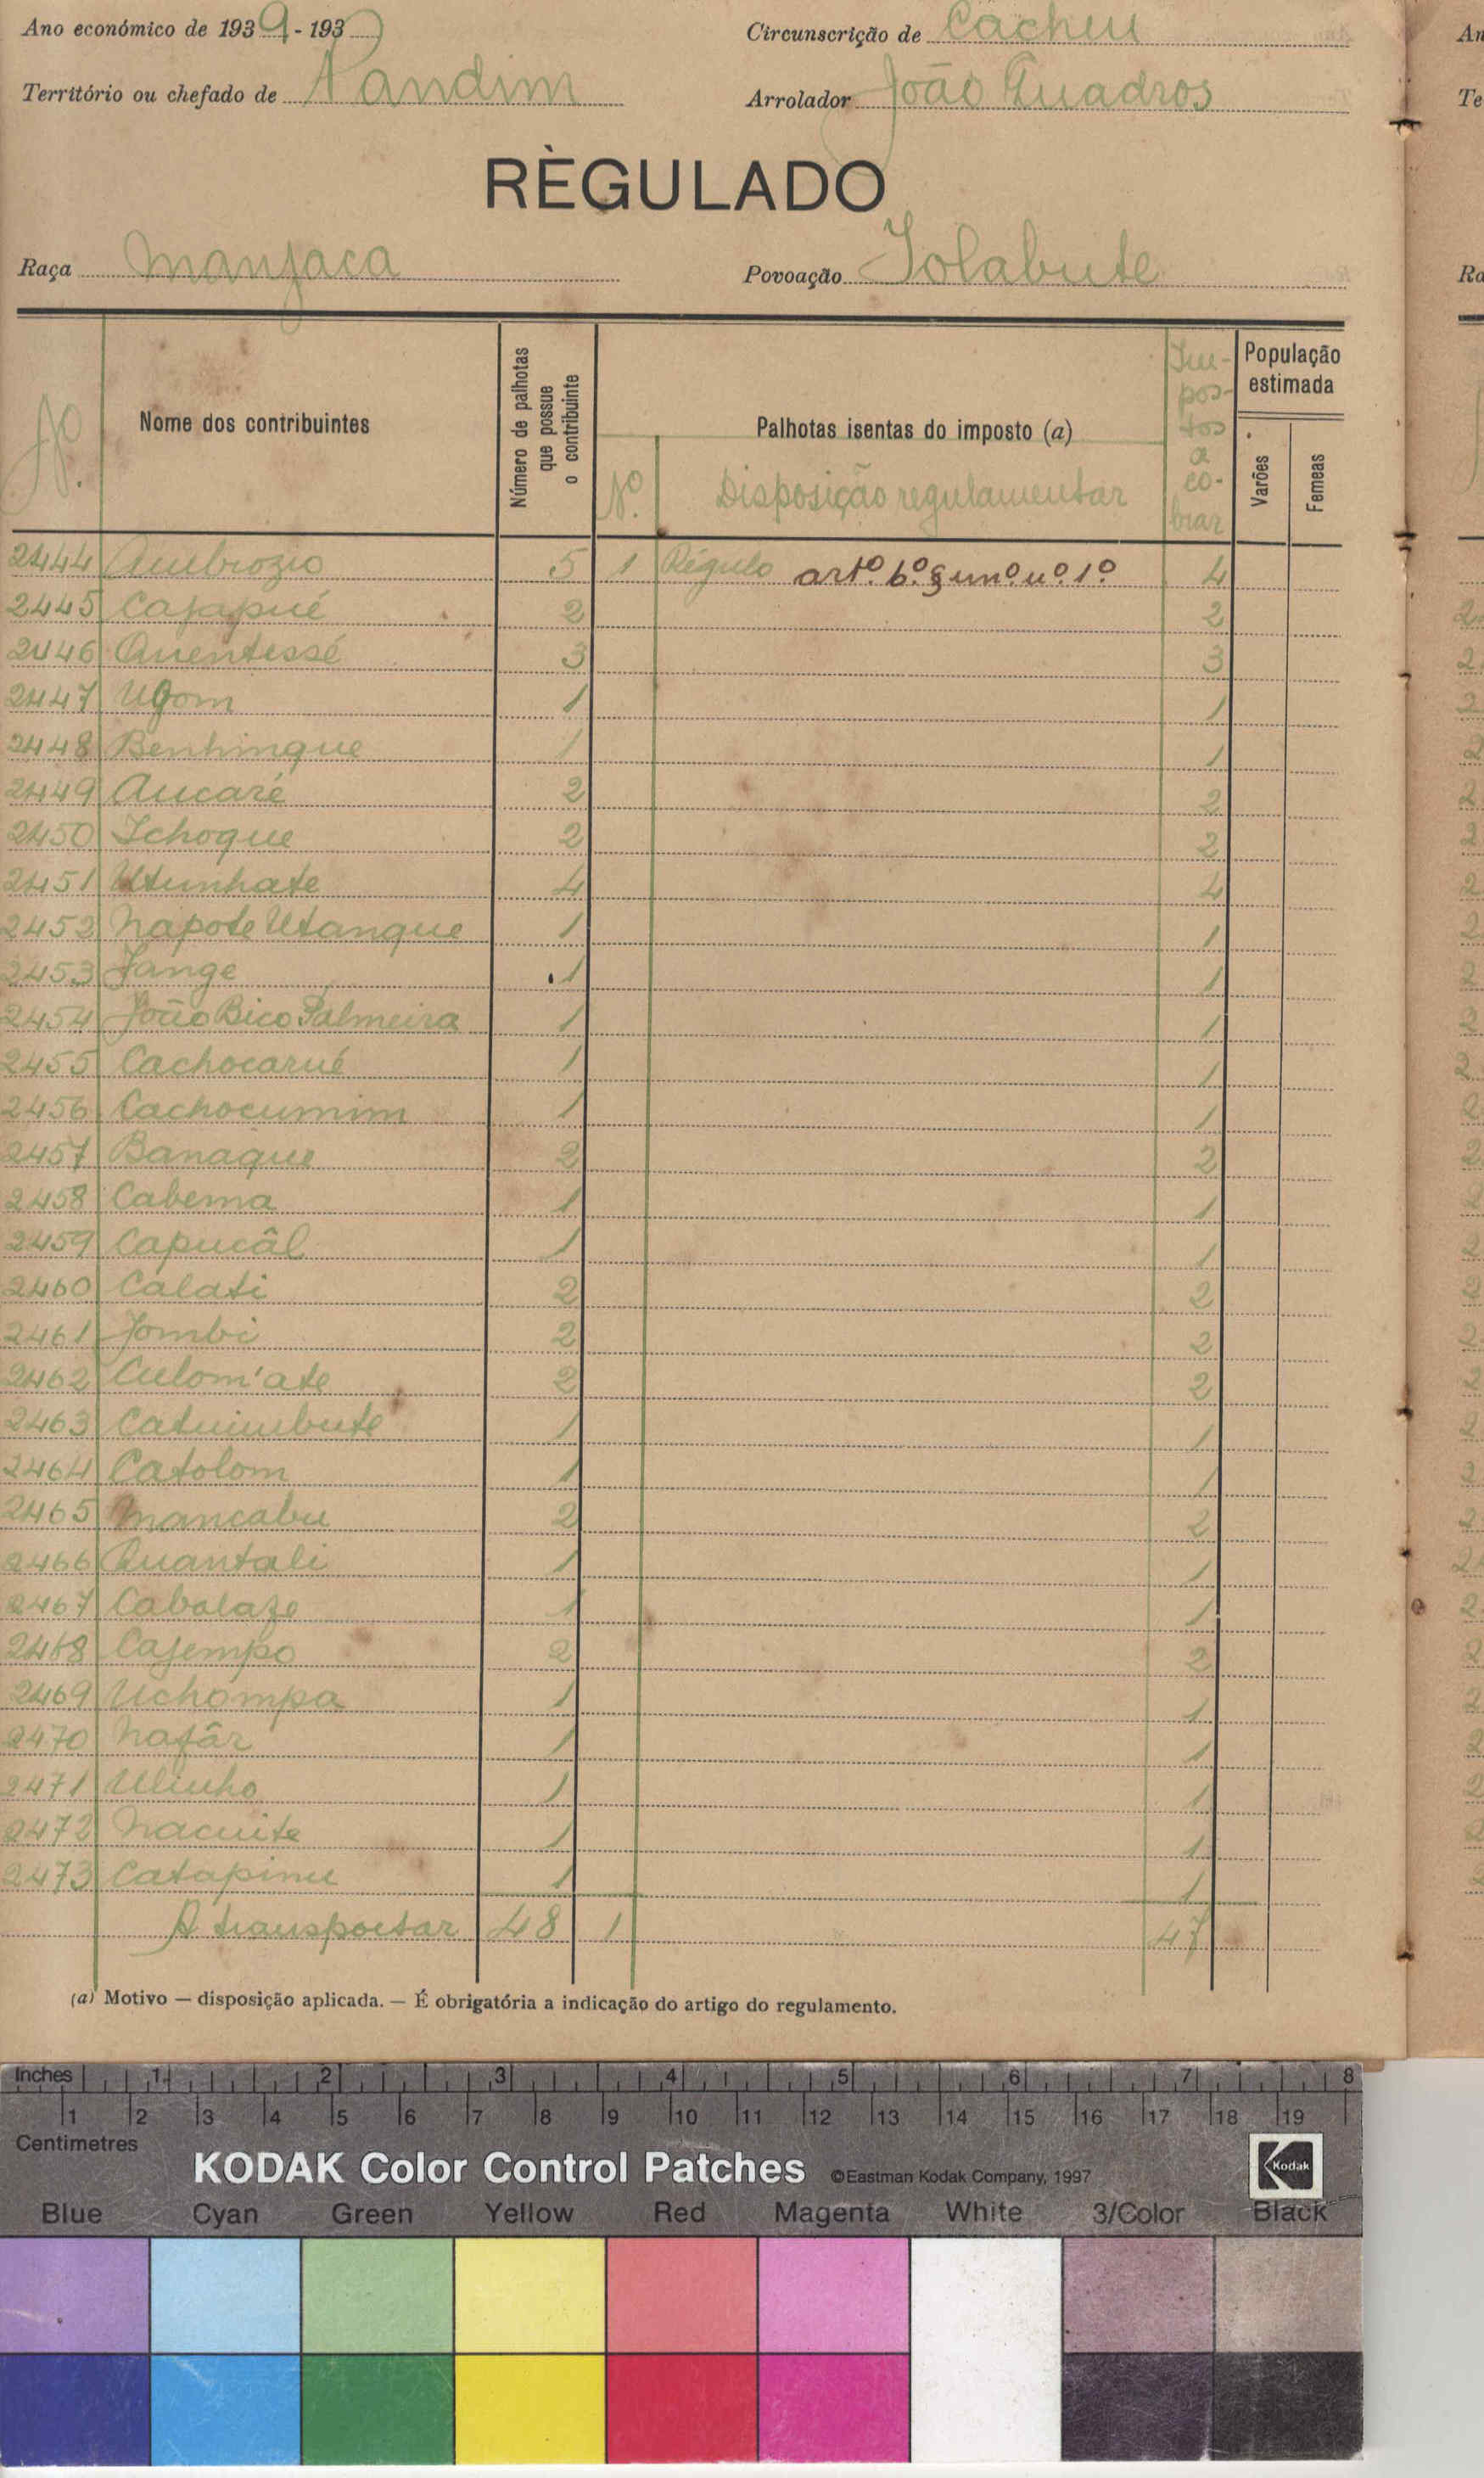 Ano económico de 1939-193
Circunscrição de Cacheu
Território ou chefado de Pandim
Arrolador João Quadros
RÈGULADO
Raça manjaca
Povoação Tolabute
Nº.
Nome dos contribuintes
Número de palhotas que possue o contribuinte
Palhotas isentas do imposto (a)
Nº.
Disposição regulamentar
Impostos a cobrar
População estimada
Varões
Femeas
2444 Ambrozio 5 1 Régulo artº. 6º. § unº nº. 1º 4
2445 Cajapué 2 2
2446 Quentessé 3 3
2447 Ugom 1 1
2448 Benhingue 1 1
2449 Aucaré 2 2
2450 Ichoque 2 2
2451 Utunhate 4 4
2452 Napote Utanque 1 1
2453 Jange 1 1
2454 João Bico Palmeira 1 1
2455 Cachocarué 1 1
2456 Cachocumim 1 1
2457 Banaque 2 2
2458 Cabema 1 1
2459 Capucâl 1 1
2460 Calati 2 2
2461 Jombi 2 2
2462 Culom'ate 2 2
2463 Catuimbute 1 1
2464 Catolom 1 1
2465 Mancabu 2 2
2466 Quantali 1 1
2467 Cabalaze 1 1
2468 Cajempo 2 2
2469 Uchompa 1 1
2470 Nafâr 1 1
2471 Ulinho 1 1
2472 Nacuite 1 1
2473 Catapinu 1 1
A transportar 48 1 47
(a) Motivo — disposição aplicada. — É obrigatória a indicação do artigo do regulamento.
Inches 1 2 3 4 5 6 7 8
1 2 3 4 5 6 7 8 9 10 11 12 13 14 15 16 17 18 19
Centimetres
KODAK Color Control Patches ©Eastman Kodak Company, 1997 Kodak
Blue Cyan Green Yellow Red Magenta White 3/Color Black